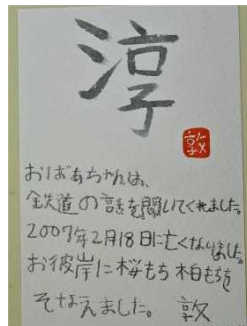 淳
敦
おばあちゃんは、
鉄道の話を聞いてくれました。
2007年2月18日に亡くなりました。
お彼岸に桜もち 柏もちを
そなえました。 敦